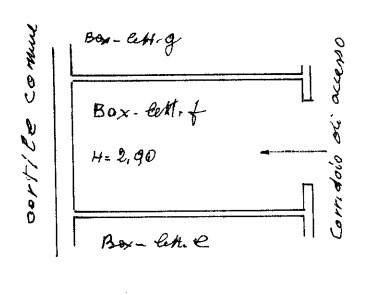 Box-lett.g
cortile comune
Box-lett.f
H=2,90
Corridoio di accesso
Box-lett.e